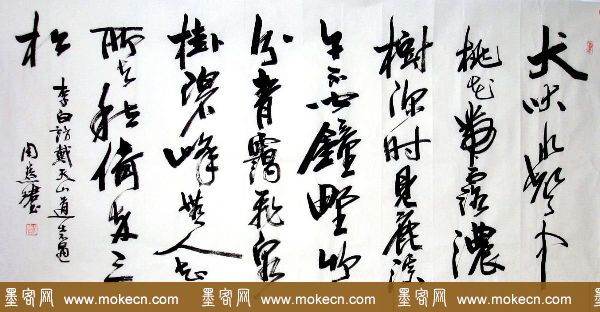 犬吠水聲中
桃花帶露濃
樹深时見鹿溪
午不闻鐘野竹
分青靄飛泉
掛碧峰無人知
所去愁倚两三
松
李白訪戴天山道士不遇
周
墨客网 www.mokecn.com 墨客网 www.mokecn.com 墨客网 www.mokecn.com